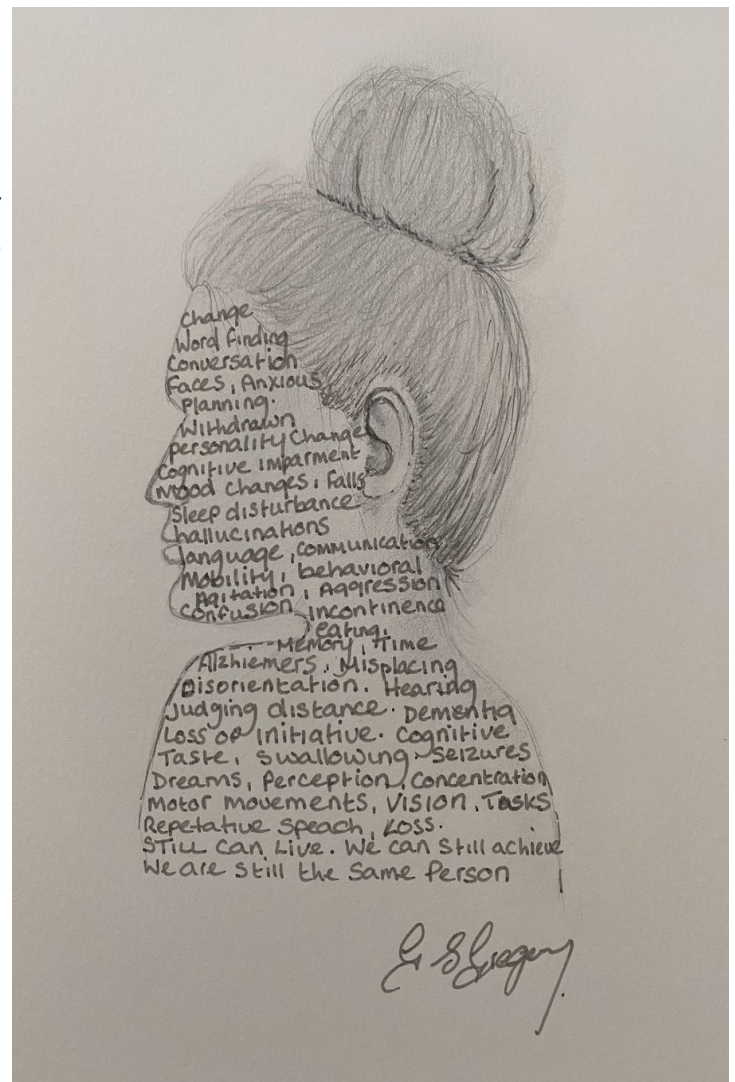 Change
Word finding
Conversation
Faces, Anxious
Planning.
Withdrawn
personality Change
Cognitive imparment
Mood Changes, Falls
Sleep disturbance
hallucinations
language, communication
Mobility, behavioral
Agitation, Aggression
Confusion, incontinence
eating.
Memory, Time
Alzhiemers, Misplacing
Disorientation. Hearing
Judging distance. Dementia
Loss of initiative. Cognitive
Taste, Swallowing, Seizures
Dreams, Perception, Concentration
Motor movements, Vision, Tasks
Repetative Speach, Loss.
STILL Can Live. We can Still achieve
We are Still the Same Person
G S Gregory